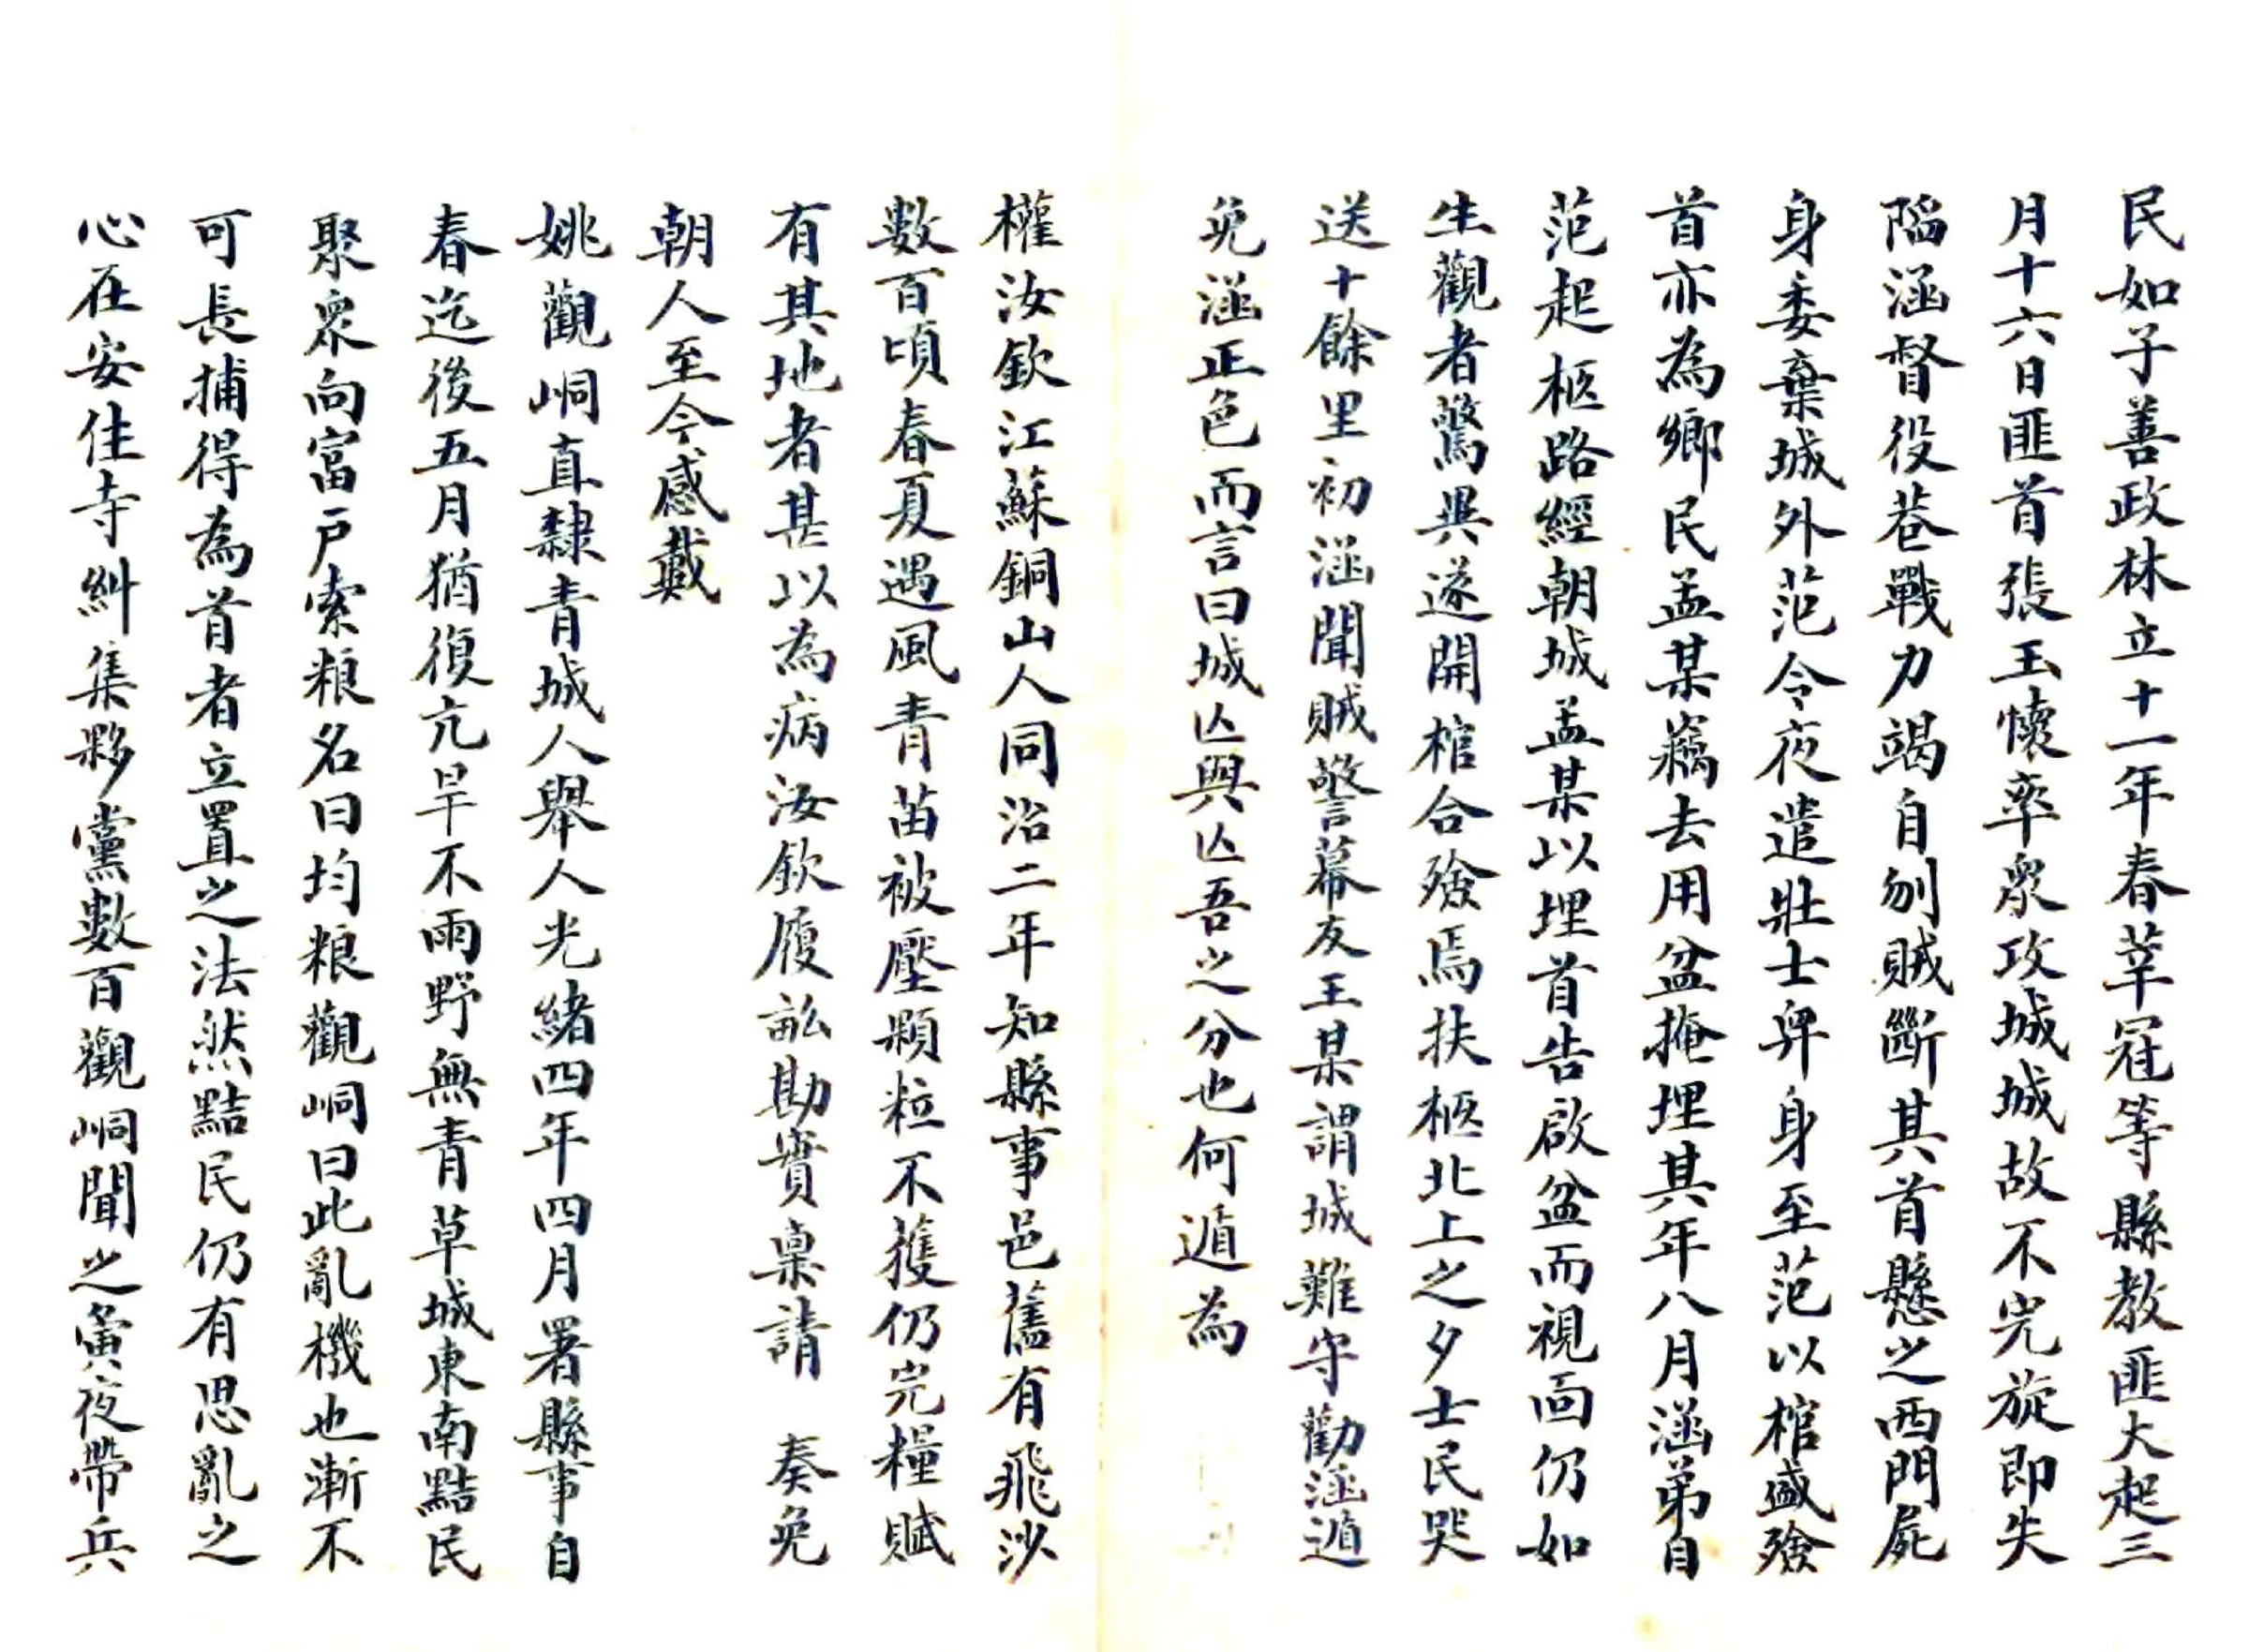 民如子善政林立十一年春莘冠等縣教匪大起三
月十六日匪首張玉懷率衆攻城城故不完旋即失
陷涵督役巷戰力竭自刎賊斷其首懸之西門屍
身委棄城外范令夜遣壯士舁身至范以棺盛殮
首亦為鄉民孟某竊去用盆掩埋其年八月涵弟自
范起柩路經朝城孟某以埋首告啟盆而視面仍如
生觀者驚異遂開棺合殮焉扶柩北上之夕士民哭
送十餘里初涵聞賊警幕友王某謂城難守勸涵遁
免涵正色而言曰城亾與亾吾之分也何遁為
權汝欽江蘇銅山人同治二年知縣事邑舊有飛沙
數百頃春夏遇風青苗被壓顆粒不獲仍完糧賦
有其地者甚以為病汝欽履畝勘實稟請 奏免
朝人至今感戴
姚觀峒直隸青城人舉人光緒四年四月署縣事自
春迄後五月猶復亢旱不雨野無青草城東南黠民
聚衆向富戶索粮名曰均粮觀峒曰此亂機也漸不
可長捕得為首者立置之法然黠民仍有思亂之
心在安住寺糾集夥黨數百觀峒聞之夤夜帶兵